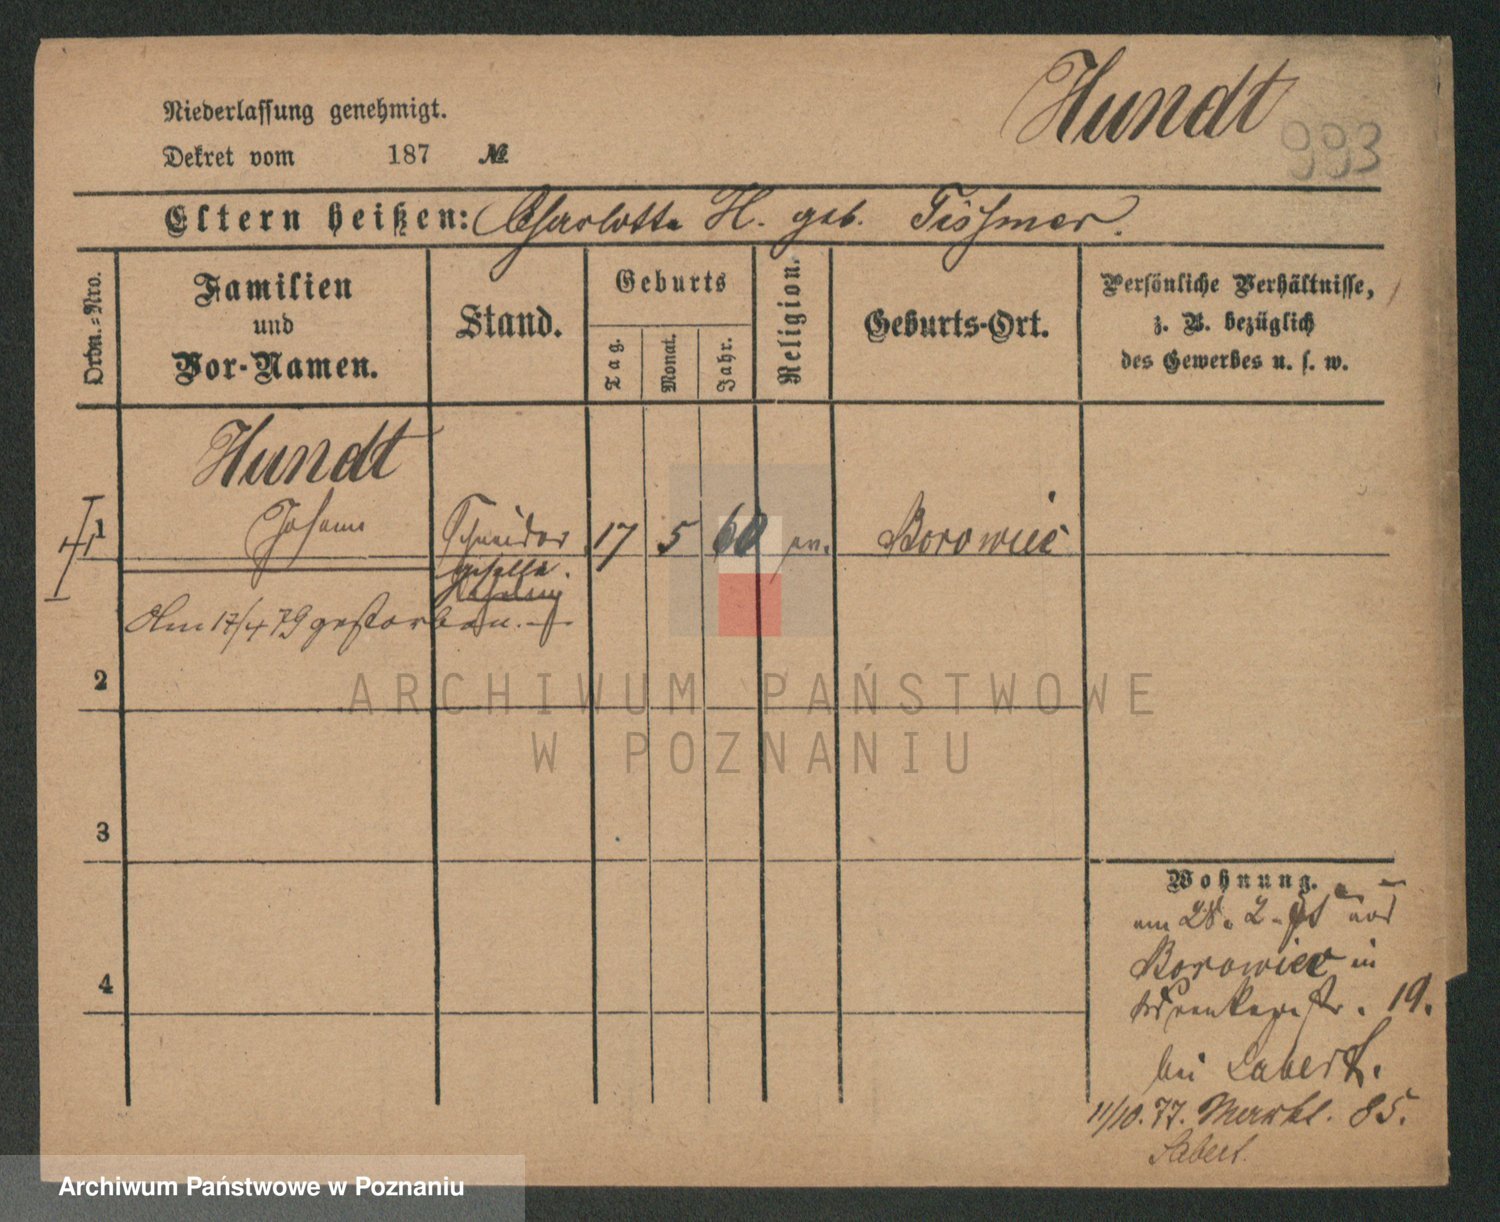 Hundt
993
Niederlassung genehmigt.
Dekret vom 187 №
Eltern heißen: Charlotte H. geb. Tissmer.
Ordn.-Nro.
Familien
und
Vor-Namen.
Stand.
Geburts
Tag.
Monat.
Jahr.
Religion.
Geburts-Ort.
Persönliche Verhältnisse,
z. B. bezüglich
des Gewerbes u. s. w.
Hundt
1 Johann Schneider 17 5 60 ev. Borowiec
geselle.
Am 17/4 79 gestorben.
2
ARCHIWUM PAŃSTWOWE
W POZNANIU
3
Wohnung.
am 28. 2. aus
4
Borowiec in
str. 19.
bei Labert.
11/10. 77. Markt. 85.
Labert.
Archiwum Państwowe w Poznaniu